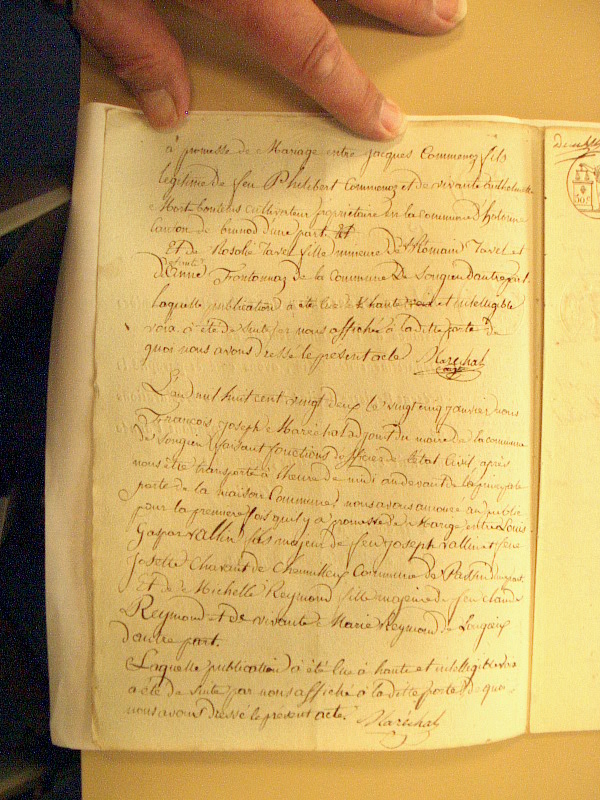 à promesse de Mariage entre jacques Commenoz fils
legitime de feu Philebert Commenoz et de vivante
Mort cultivateur proprietaire en la commune d'
canton de d'une part et
Et de Rosalie Tavel fille mineure de Romain Tavel et
D'Anne Frontonnaz de la Commune de Songieu d'autre part.
laquelle publication a été lue à haute et intelligible
voix a été de suite par nous affichée à la ditte porte de
quoi nous avons dressé le présent acte Maréchal
adjt
L'an dix huit cent vingt deux le vingt cinq janvier nous
François joseph Maréchal adjoint du maire de la commune
de Songieu faisant fonctions d'officier de l'état Civil, après
nous être transporté à l'heure de midi au devant de la principale
porte de la maison Commune, nous avons annoncé au public
pour la premiere fois qu'il y a promesse de Mariage entre Louis
Gaspar Vallin fils majeur de feu joseph Vallin et feue
josette Charvet de Chemillieu Commune de d'une part
Et de Michelle Reymond fille majeure de feu claude
Reymond et de vivante Marie Reymond de Songieu
d'autre part.
Laquelle publication a été lue à haute et intelligible voix
a été de suite par nous affiché à la ditte porte de quoi
nous avons dressé le présent acte. Maréchal